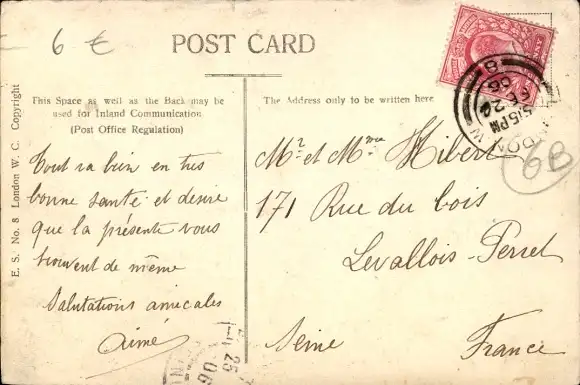 6 €
POST CARD
This Space as well as the Back may be
used for Inland Communication
(Post Office Regulation)
The Address only to be written here
E. S. No. 8 London W. C. Copyright
Tout va bien en très
bonne santé et désire
que la présente vous
trouvent de même
Salutations amicales
Aimé
Mr et Mme Hibert
171 Rue du bois
Levallois-Perret
Seine France
5.15PM
06
6B
25
06